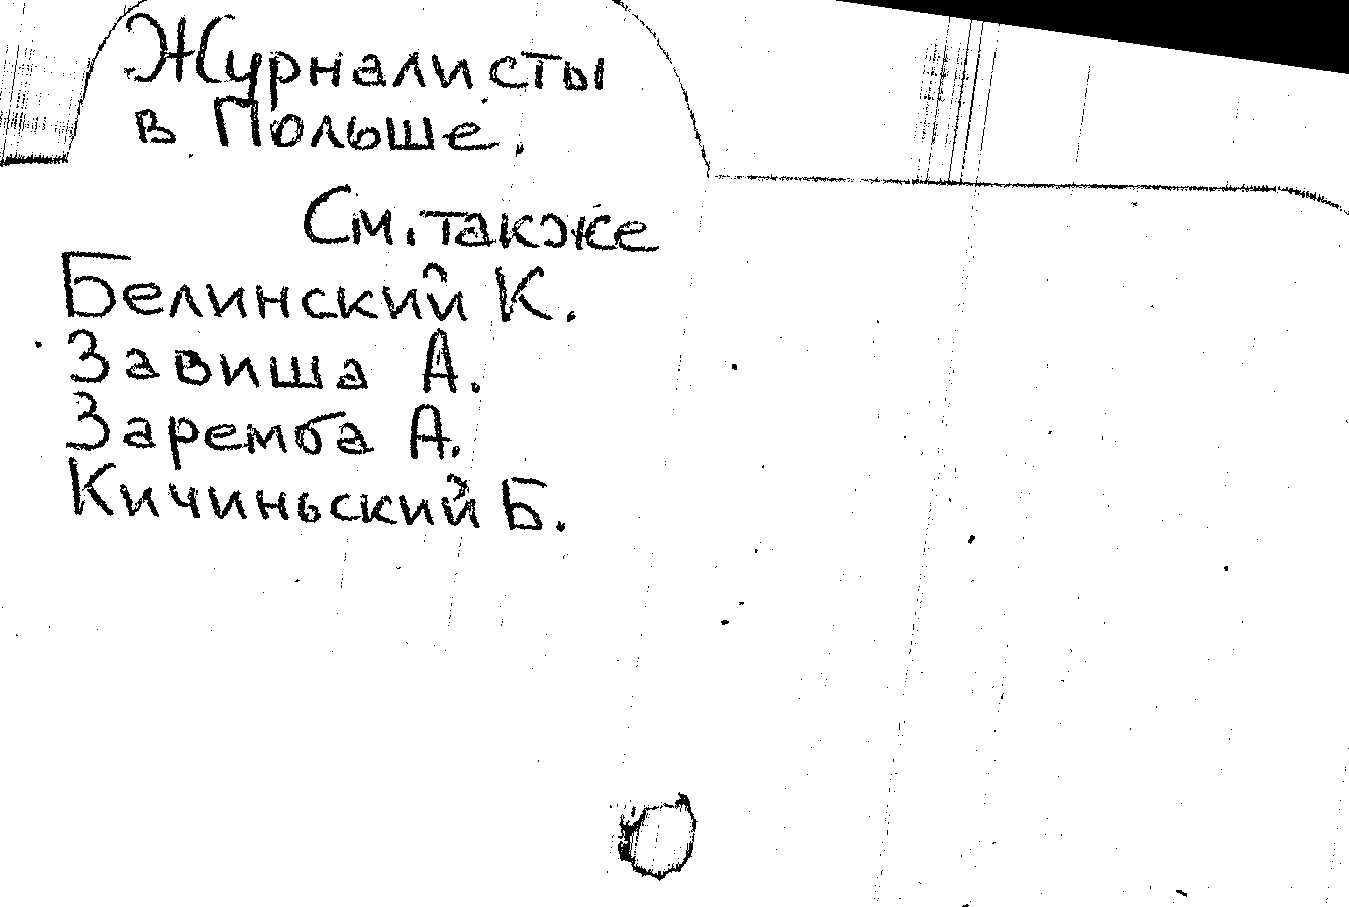 Журналисты
в Польше.
См. также
Белинский К.
Завиша А.
Заремба А.
Кичиньский Б.